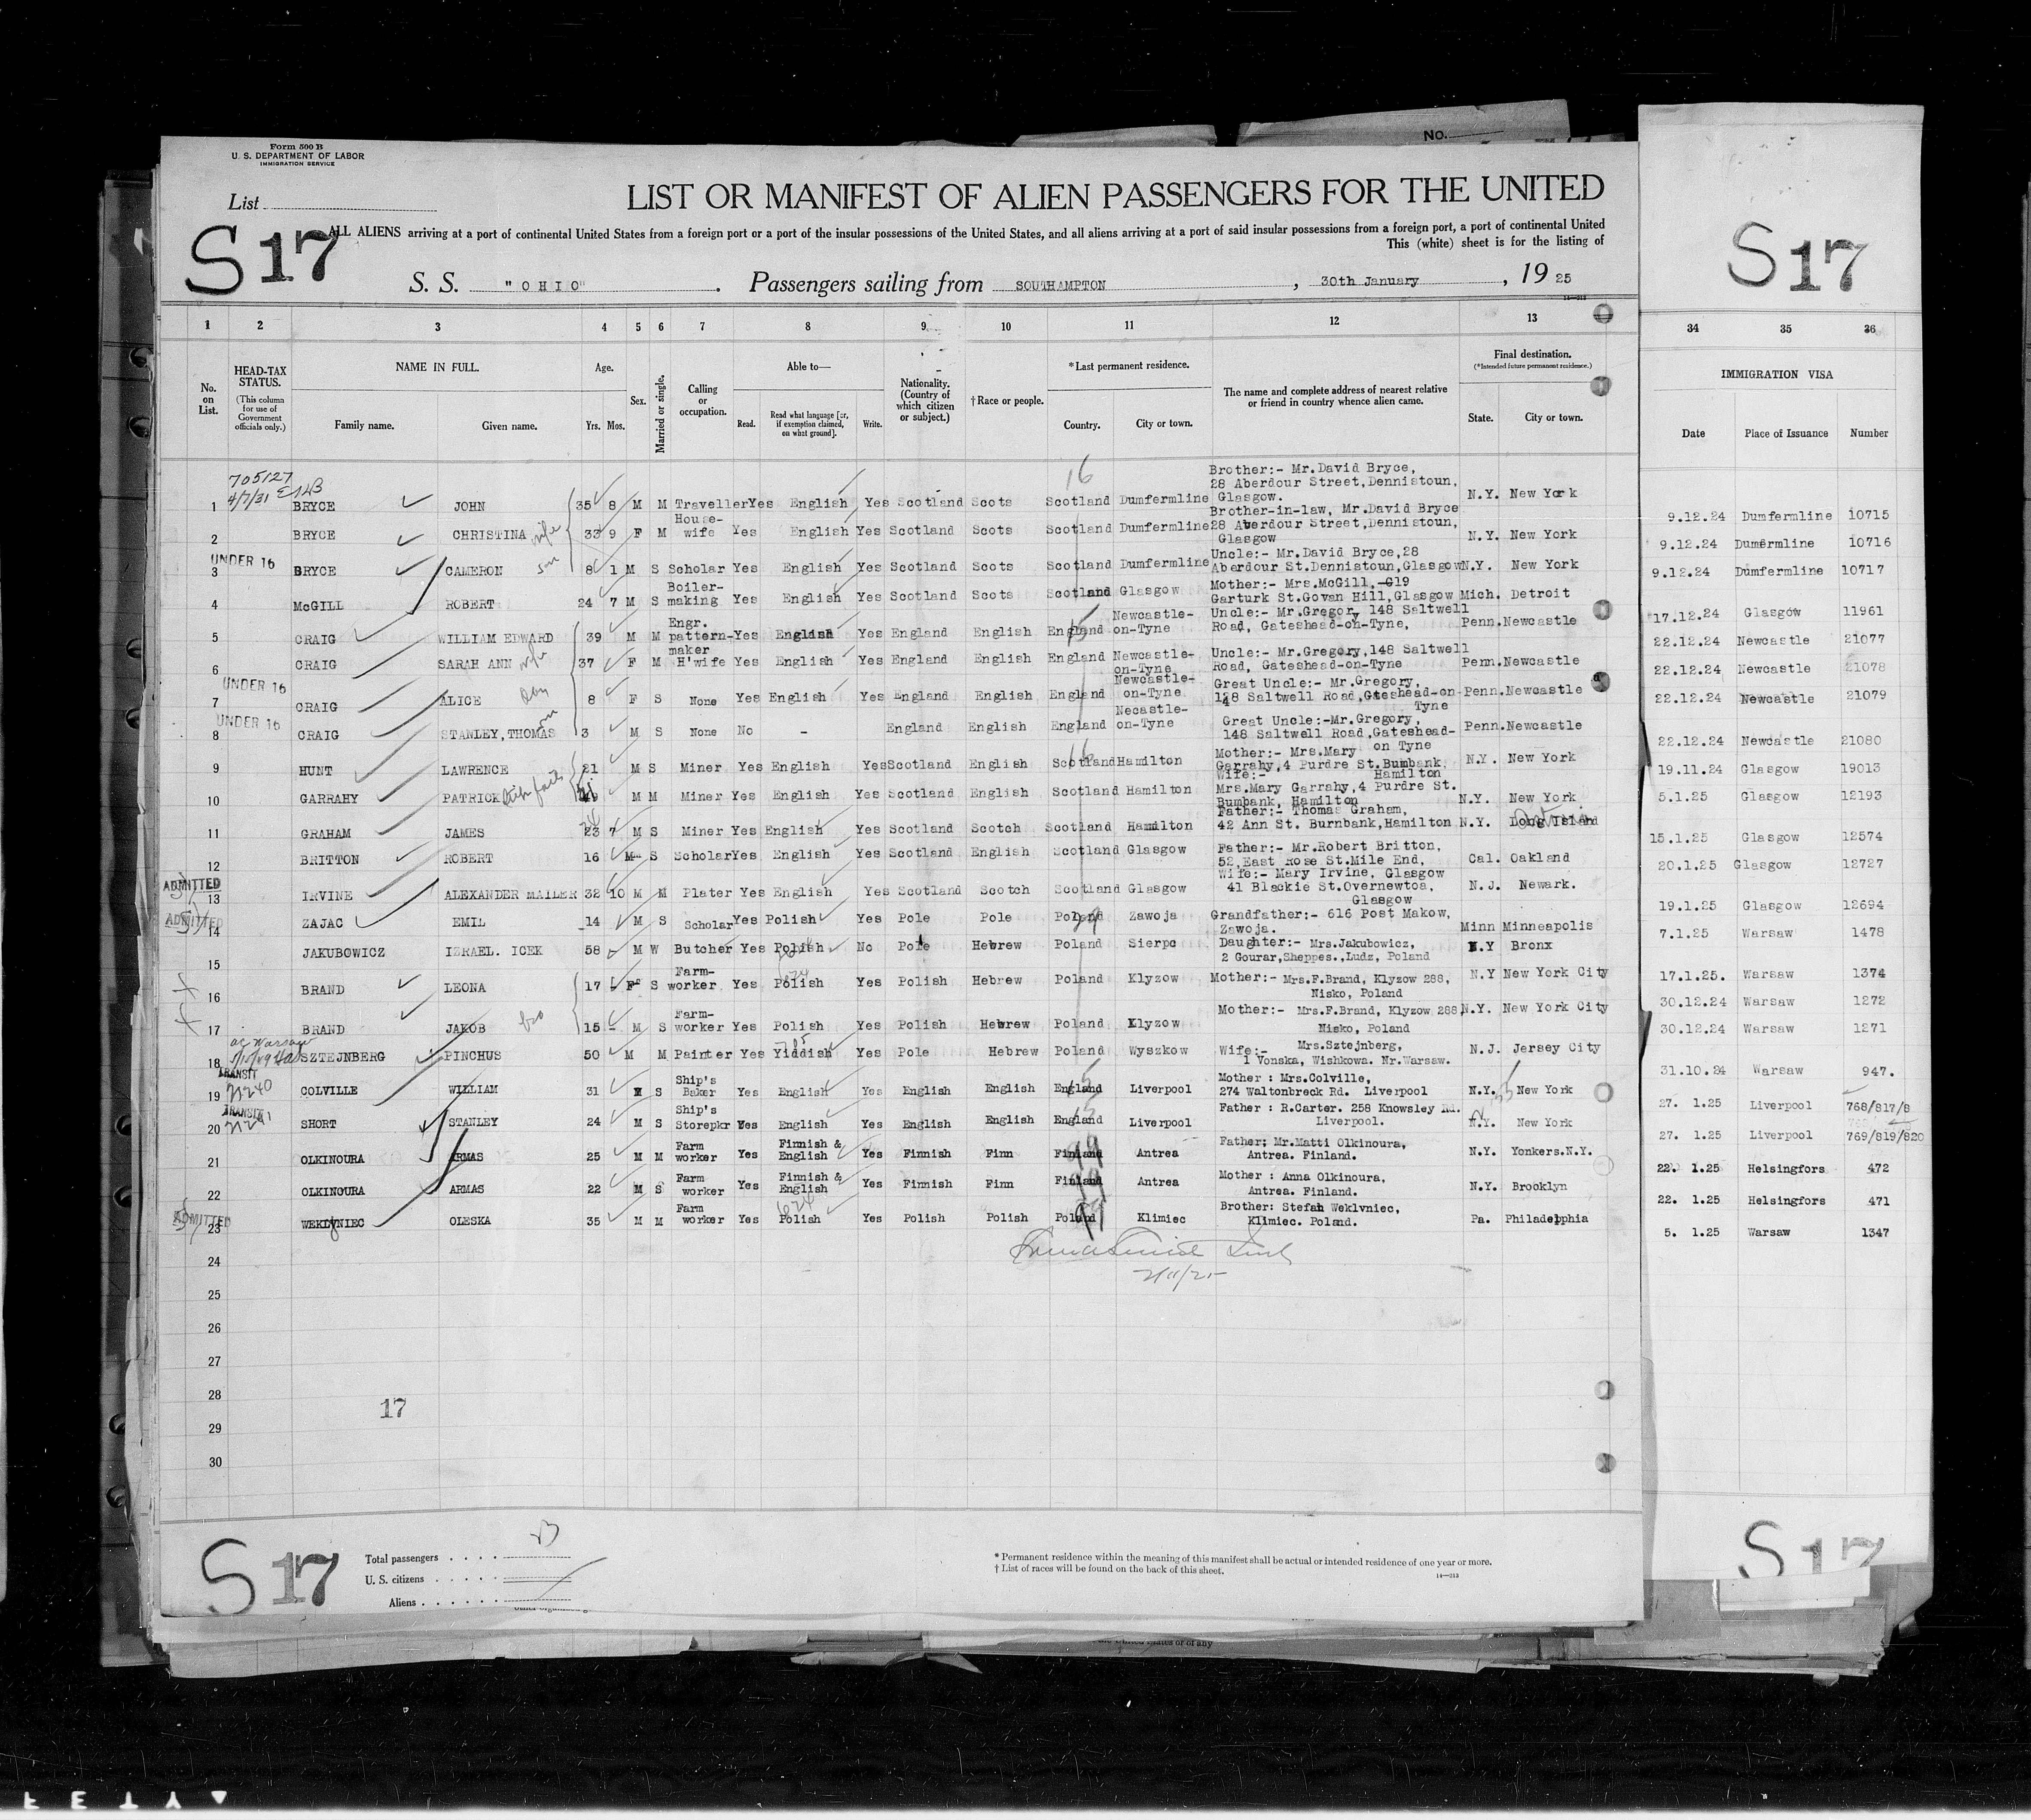 NO.
Form 500 B
U. S. DEPARTMENT OF LABOR
IMMIGRATION SERVICE
List
LIST OR MANIFEST OF ALIEN PASSENGERS FOR THE UNITED
S 17
ALL ALIENS arriving at a port of continental United States from a foreign port or a port of the insular possessions of the United States, and all aliens arriving at a port of said insular possessions from a foreign port, a port of continental United
This (white) sheet is for the listing of
S 17
S. S. "OHIO". Passengers sailing from SOUTHAMPTON, 30th January, 19 25
1 2 3 4 5 6 7 8 9 10 11 12 13 34 35 36
No. on List.
HEAD-TAX STATUS.
(This column for use of Government officials only.)
NAME IN FULL.
Family name. Given name.
Age.
Yrs. Mos.
Sex.
Married or single.
Calling or occupation.
Able to—
Read. Read what language [or, if exemption claimed, on what ground]. Write.
Nationality. (Country of which citizen or subject.)
†Race or people.
*Last permanent residence.
Country. City or town.
The name and complete address of nearest relative or friend in country whence alien came.
Final destination.
(*Intended future permanent residence.)
State. City or town.
IMMIGRATION VISA
Date Place of Issuance Number
705127
4/7/31
16
1 BRYCE JOHN 35 8 M M Traveller Yes English Yes Scotland Scots Scotland Dumfermline Brother:- Mr.David Bryce, 28 Aberdour Street,Dennistoun, Glasgow. N.Y. New York 9.12.24 Dumfermline 10715
2 BRYCE CHRISTINA wife 33 9 F M House-wife Yes English Yes Scotland Scots Scotland Dumfermline Brother-in-law, Mr.David Bryce 28 Aberdour Street,Dennistoun, Glasgow N.Y. New York 9.12.24 Dumermline 10716
UNDER 16
3 BRYCE CAMERON son 8 1 M S Scholar Yes English Yes Scotland Scots Scotland Dumfermline Uncle:- Mr.David Bryce,28 Aberdour St.Dennistoun,Glasgow N.Y. New York 9.12.24 Dumfermline 10717
4 McGILL ROBERT 24 7 M S Boiler-making Yes English Yes Scotland Scots Scotland Glasgow Mother:- Mrs.McGill,-G19 Garturk St.Govan Hill,Glasgow Mich. Detroit 17.12.24 Glasgow 11961
5 CRAIG WILLIAM EDWARD 39 M M Engr. pattern-maker Yes English Yes England English England Newcastle-on-Tyne Uncle:- Mr.Gregory, 148 Saltwell Road, Gateshead-on-Tyne, Penn. Newcastle 22.12.24 Newcastle 21077
6 CRAIG SARAH ANN wife 37 F M H'wife Yes English Yes England English England Newcastle-on-Tyne Uncle:- Mr.Gregory,148 Saltwell Road, Gateshead-on-Tyne Penn. Newcastle 22.12.24 Newcastle 21078
UNDER 16
7 CRAIG ALICE 8 F S None Yes English Yes England English England Newcastle-on-Tyne Great Uncle:- Mr.Gregory, 148 Saltwell Road,Gateshead-on-Tyne Penn. Newcastle 22.12.24 Newcastle 21079
UNDER 16
8 CRAIG STANLEY,THOMAS son 3 M S None No - England English England Necastle-on-Tyne Great Uncle:-Mr.Gregory, 148 Saltwell Road,Gateshead-on Tyne Penn. Newcastle 22.12.24 Newcastle 21080
9 HUNT LAWRENCE 21 M S Miner Yes English Yes Scotland English Scotland Hamilton Mother:- Mrs.Mary Garrahy,4 Purdre St.Bumbank, Hamilton N.Y. New York 19.11.24 Glasgow 19013
10 GARRAHY PATRICK 49 M M Miner Yes English Yes Scotland English Scotland Hamilton Wife:- Mrs.Mary Garrahy,4 Purdre St. Bumbank, Hamilton N.Y. New York 5.1.25 Glasgow 12193
11 GRAHAM JAMES 23 7 M S Miner Yes English Yes Scotland Scotch Scotland Hamilton Father:- Thomas Graham, 42 Ann St. Burnbank,Hamilton N.Y. Long Island 15.1.25 Glasgow 12574
12 BRITTON ROBERT 16 M S Scholar Yes English Yes Scotland English Scotland Glasgow Father:- Mr.Robert Britton, 52,East Rose St.Mile End, Cal. Oakland 20.1.25 Glasgow 12727
ADMITTED
13 IRVINE ALEXANDER MAILER 32 10 M M Plater Yes English Yes Scotland Scotch Scotland Glasgow Wife:- Mary Irvine, Glasgow 41 Blackie St.Overnewtoa, Glasgow N.J. Newark. 19.1.25 Glasgow 12694
ADMITTED
14 ZAJAC EMIL 14 M S Scholar Yes Polish Yes Pole Pole Poland Zawoja Grandfather:- 616 Post Makow, Zawoja. Minn Minneapolis 7.1.25 Warsaw 1478
15 JAKUBOWICZ IZRAEL. ICEK 58 M W Butcher Yes Polish No Pole Hebrew Poland Sierpc Daughter:- Mrs.Jakubowicz, 2 Gourar,Sheppes.,Ludz, Poland N.Y Bronx 17.1.25. Warsaw 1374
16 BRAND LEONA 17 F S Farm-worker Yes Polish Yes Polish Hebrew Poland Klyzow Mother:- Mrs.F.Brand, Klyzow 288, Nisko, Poland N.Y New York City 30.12.24 Warsaw 1272
17 BRAND JAKOB bro 15 M S Farm-worker Yes Polish Yes Polish Hebrew Poland Klyzow Mother:- Mrs.F.Brand, Klyzow 288, Nisko, Poland N.Y. New York City 30.12.24 Warsaw 1271
18 SZTEJNBERG PINCHUS 50 M M Painter Yes Yiddish Yes Pole Hebrew Poland Wyszkow Wife:- Mrs.Sztejnberg, 1 Vonska, Wishkowa. Nr.Warsaw. N.J. Jersey City 31.10.24 Warsaw 947.
TRANSIT
21240
19 COLVILLE WILLIAM 31 M S Ship's Baker Yes English Yes English English England Liverpool Mother : Mrs.Colville, 274 Waltonbreck Rd. Liverpool N.Y. New York 27. 1.25 Liverpool 768/817/8
TRANSIT
21241
20 SHORT STANLEY 24 M S Ship's Storepkr Yes English Yes English English England Liverpool Father : R.Carter. 258 Knowsley Rd. Liverpool. N.Y. New York 27. 1.25 Liverpool 769/819/820
21 OLKINOURA ARMAS 25 M M Farm worker Yes Finnish & English Yes Finnish Finn Finland Antrea Father; Mr.Matti Olkinoura, Antrea. Finland. N.Y. Yonkers.N.Y. 22. 1.25 Helsingfors 472
22 OLKINOURA ARMAS 22 M S Farm worker Yes Finnish & English Yes Finnish Finn Finland Antrea Mother : Anna Olkinoura, Antrea. Finland. N.Y. Brooklyn 22. 1.25 Helsingfors 471
ADMITTED
23 WEKLYNIEC OLESKA 35 M M Farm worker Yes Polish Yes Polish Polish Poland Klimiec Brother: Stefan Weklvniec, Klimiec. Poland. Pa. Philadelphia 5. 1.25 Warsaw 1347
24
2/11/25
25
26
27
28
17
29
30
S 17
Total passengers 23
U. S. citizens
Aliens
* Permanent residence within the meaning of this manifest shall be actual or intended residence of one year or more.
† List of races will be found on the back of this sheet.
14—213
S 17